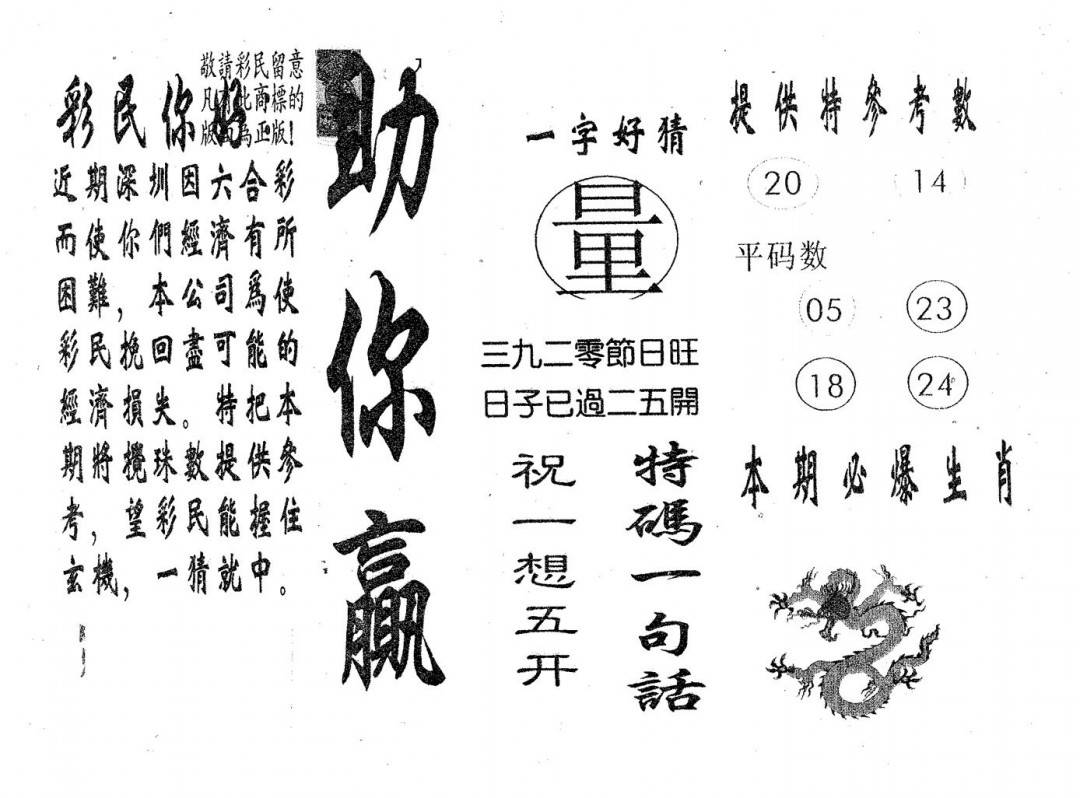 敬請彩民留意
凡有此商標的
版面為正版！
彩民你好
近期深圳因六合彩
而使你們經濟有所
困難，本公司爲使
彩民挽回盡可能的
經濟損失。特把本
期將攪珠數提供參
考，望彩民能握住
玄機，一猜就中。
助你贏
一字好猜
量
三九二零節日旺
日子已過二五開
特碼一句話
祝一想五开
提供特參考數
20 14
平码数
05 23
18 24
本期必爆生肖